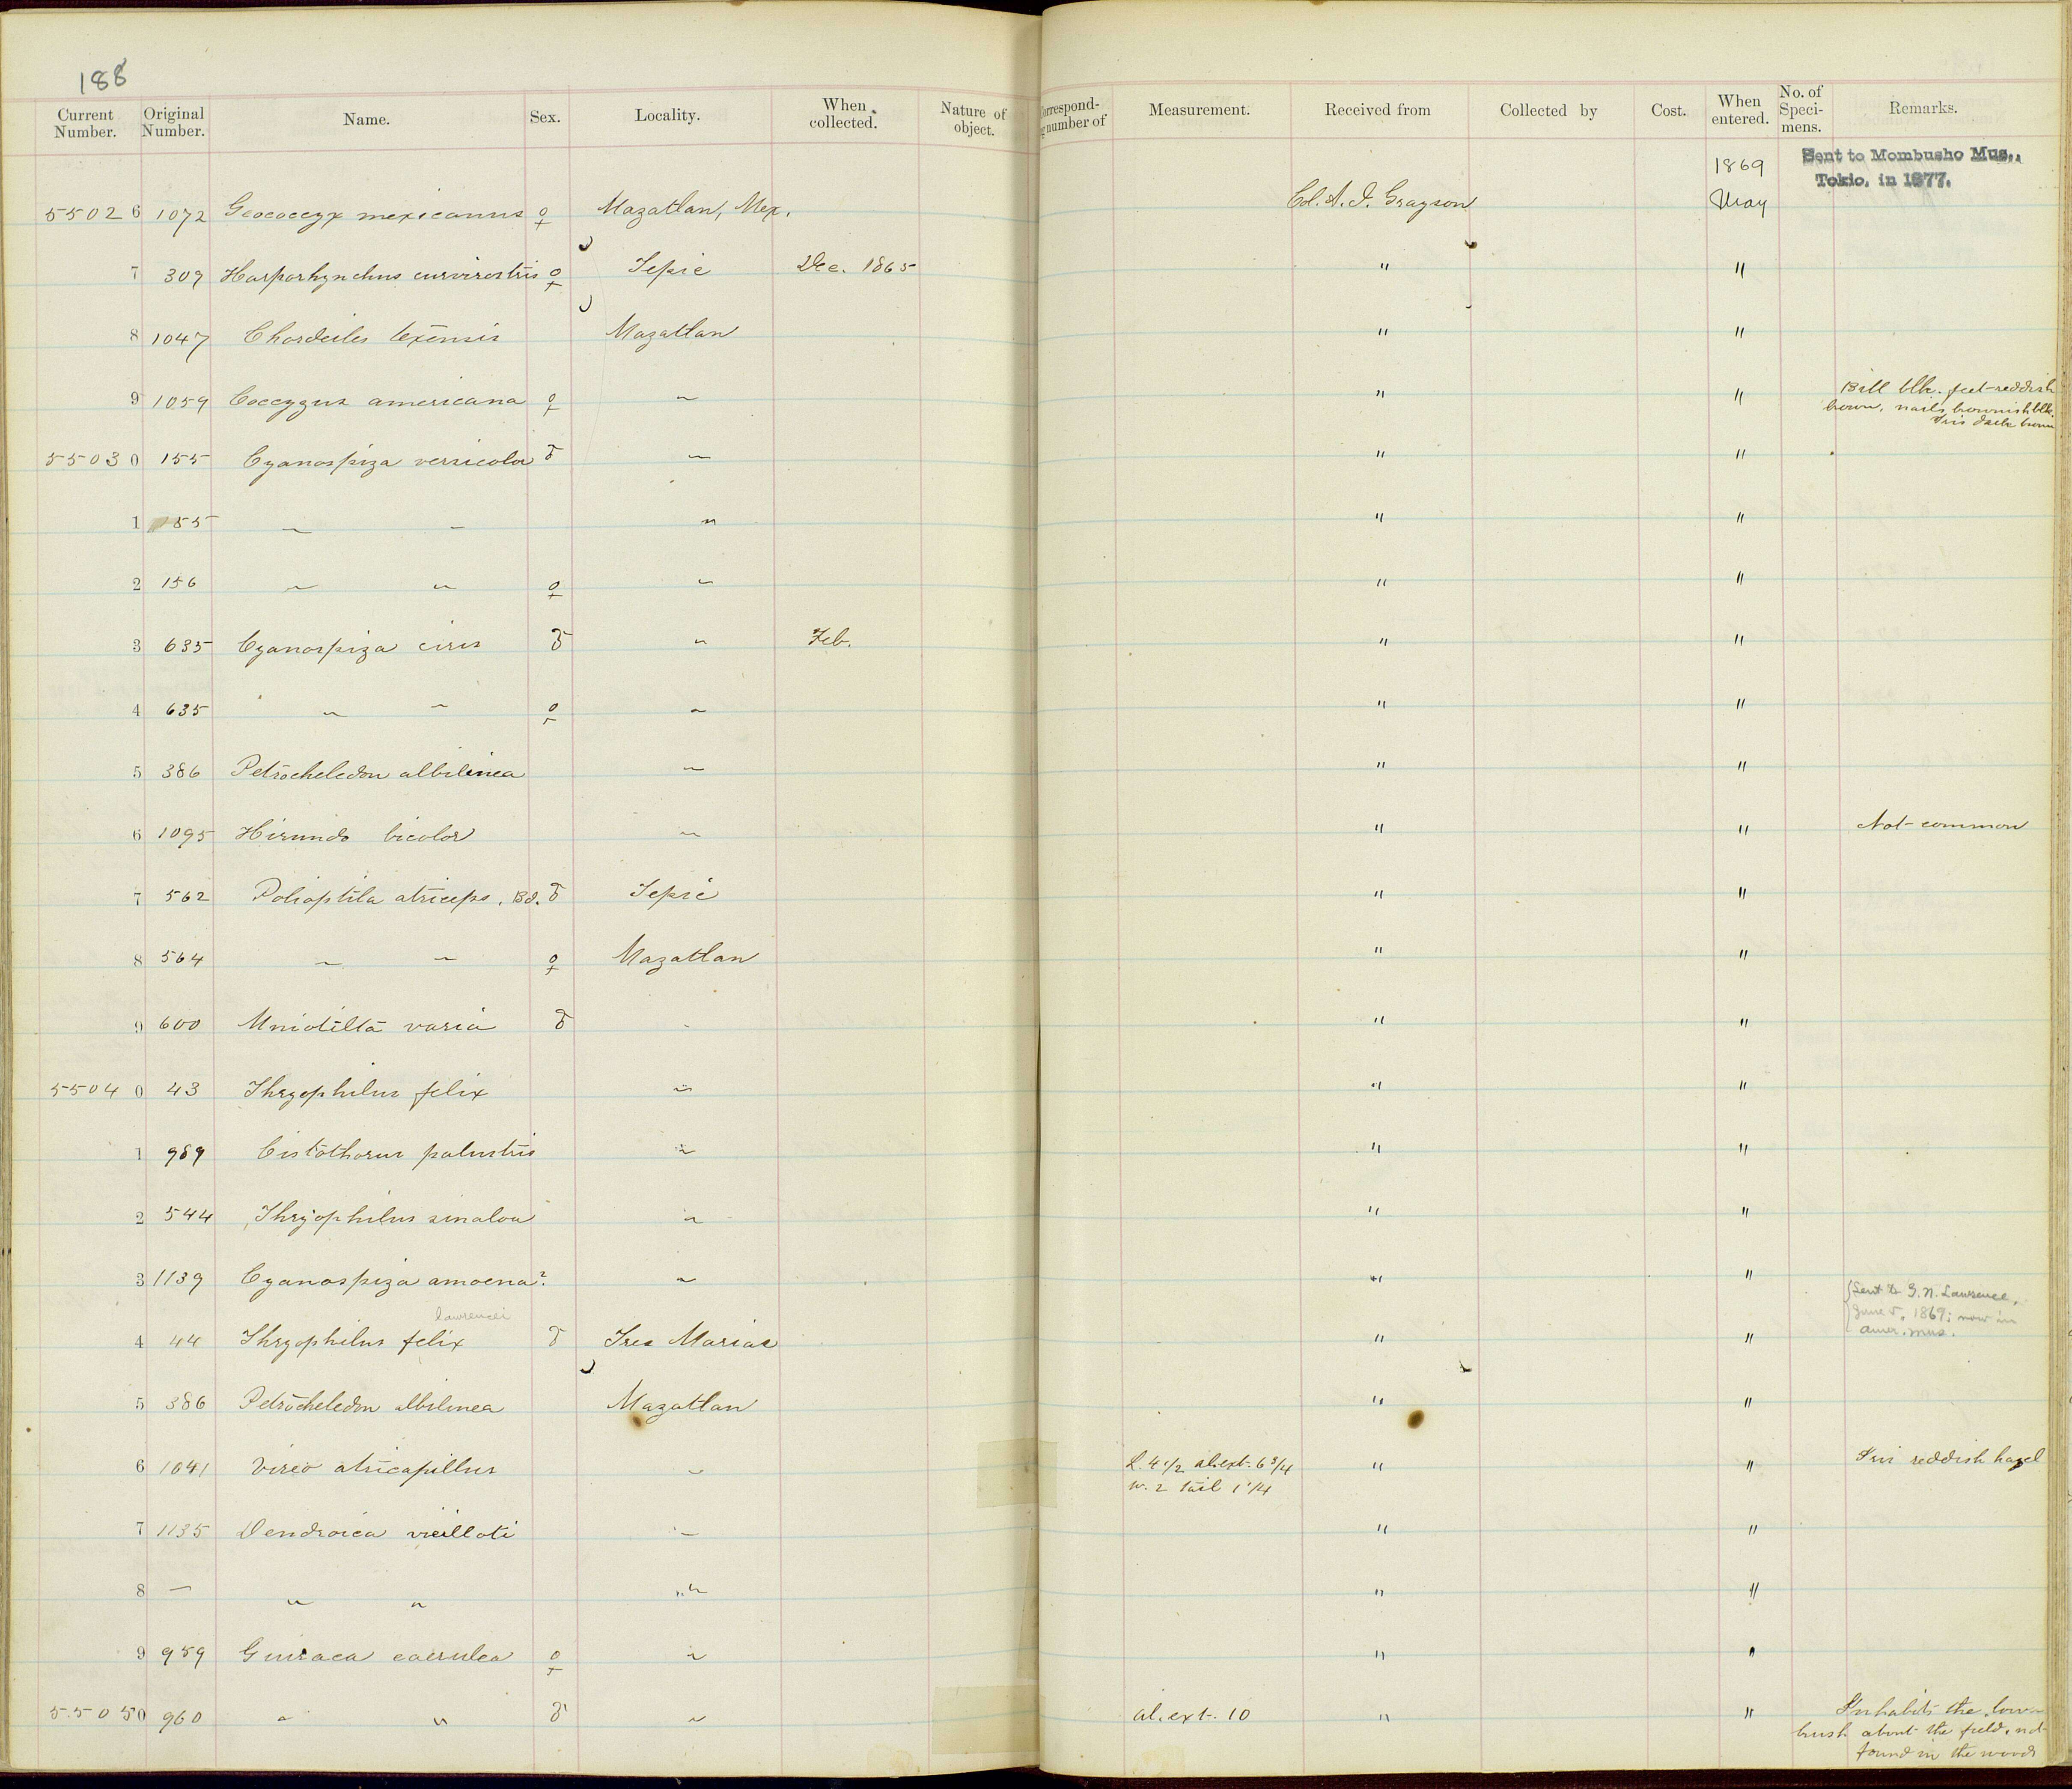 188
Current Number. Original Number. Name. Sex. Locality. When collected. Nature of object. Correspond- number of Measurement. Received from Collected by Cost. When entered. No. of Speci- mens. Remarks.
1869 Sent to Mombusho Mus., Tokio, in 1877.
55026 1072 Geococcyx mexicanus ♀ Mazatlan, Mex. Col. A. J. Grayson May
7 309 Harporhynchus curvirostris ♀ Tepic Dec. 1865 " "
8 1047 Chordeiles texensis Mazatlan " "
9 1059 Coccygus americana ♀ ~ " " Bill blk. feet reddish
brown, nails brownish blk.
Iris dark brown
55030 155 Cyanospiza versicolor ♂ ~ " "
1 155 ~ ~ " " "
2 156 ~ ~ ♀ ~ " "
3 635 Cyanospiza ciris ♂ ~ Feb. " "
4 635 ~ ~ ♀ ~ " "
5 386 Petrocheledon albilinea ~ " "
6 1095 Hirundo bicolor ~ " " Not common
7 562 Polioptila atriceps, Bd. ♂ Tepic " "
8 564 ~ ~ ♀ Mazatlan " "
9 600 Mniotilta varia ♂ - " "
55040 43 Thryophilus felix ~ " "
1 989 Cistothorus palustris ~ " "
2 544 Thryophilus sinaloa ~ " "
3 1139 Cyanospiza amoena? ~ " "
lawrencei
4 44 Thryophilus felix ♂ Tres Marias " " Sent to G. N. Lawrence,
June 5, 1869; now in
Amer. Mus.
5 386 Petrocheledon albilinea Mazatlan " "
6 1041 Vireo atricapillus ~ L. 4 1/2 al. ext. 6 3/4 " " Iris reddish hazel
w. 2 tail 1 1/4
7 1135 Dendroica vieilloti ~ " "
8 — " " " " "
9 959 Guiraca caerulea ♀ ~ " "
55050 960 " " ♂ ~ al. ext. 10 " " Inhabits the low
brush about the field, not
found in the woods